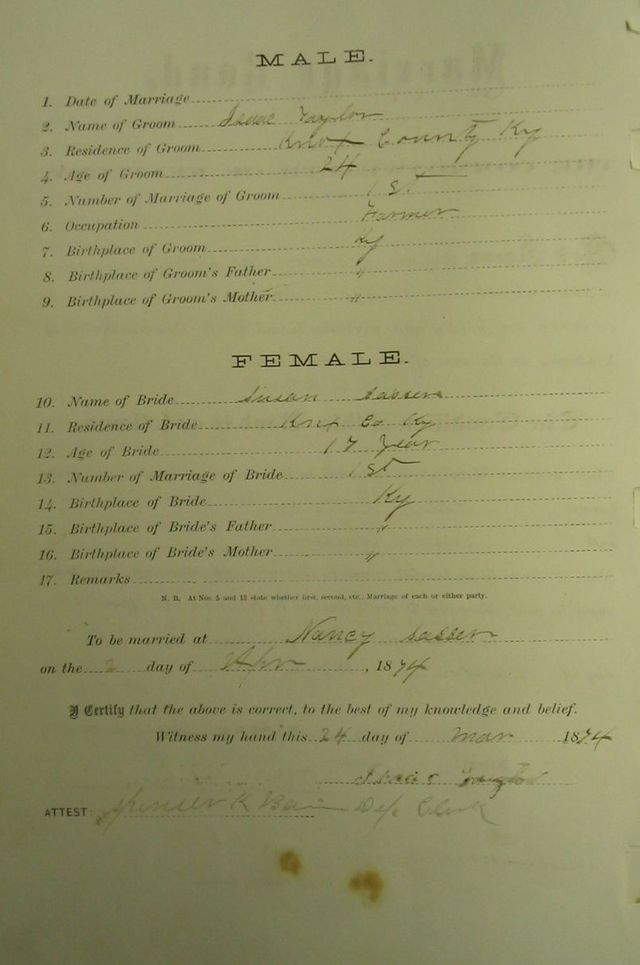 MALE.
1. Date of Marriage
2. Name of Groom Isaac Taylor
3. Residence of Groom Knox County Ky
4. Age of Groom 24
5. Number of Marriage of Groom 1st
6. Occupation Farmer
7. Birthplace of Groom Ky
8. Birthplace of Groom's Father "
9. Birthplace of Groom's Mother "
FEMALE.
10. Name of Bride Susan Sasser
11. Residence of Bride Knx Co Ky
12. Age of Bride 17 Year
13. Number of Marriage of Bride 1st
14. Birthplace of Bride Ky
15. Birthplace of Bride's Father "
16. Birthplace of Bride's Mother "
17. Remarks
N. B. At Nos. 5 and 13 state whether first, second, etc., Marriage of each or either party.
To be married at Nancy Sasser
on the 2 day of Apr, 1874
I Certify that the above is correct, to the best of my knowledge and belief.
Witness my hand this 24 day of Mar 1874
Isaac Taylor
ATTEST: K Dep Clerk